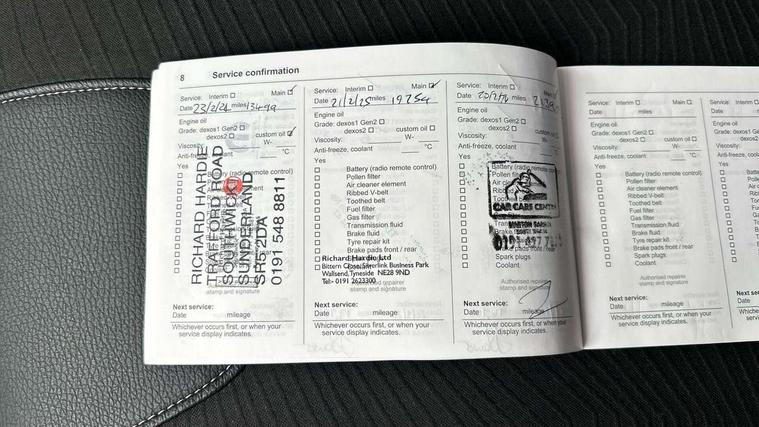 8 Service confirmation
Service: Interim Main
Date 23/2/24 miles
Engine oil
Grade: dexos1 Gen2
dexos2 custom oil
Viscosity: W-
Anti-freeze, coolant °C
Yes
Battery (radio remote control)
RICHARD HARDIE
TRAFFORD ROAD
SOUTHWICK
SUNDERLAND
SR5 2DA
0191 548 8811
stamp and signature
Next service:
Date mileage
Whichever occurs first, or when your
service display indicates.
Service: Interim Main
Date 21/2/25 miles 19754
Engine oil
Grade: dexos1 Gen2
dexos2 custom oil
Viscosity: W-
Anti-freeze, coolant °C
Yes
Battery (radio remote control)
Pollen filter
Air cleaner element
Ribbed V-belt
Toothed belt
Fuel filter
Gas filter
Transmission fluid
Brake fluid
Tyre repair kit
Brake pads front / rear
Richard Hardie Ltd
Bittern Close, Silverlink Business Park
Wallsend, Tyneside NE28 9ND
Tel:- 0191 2623300
stamp and signature
Next service:
Date mileage
Whichever occurs first, or when your
service display indicates.
Service: Interim Main
Date miles
Engine oil
Grade: dexos1 Gen2
dexos2 custom oil
Viscosity: W-
Anti-freeze, coolant °C
Yes
Battery (radio remote control)
Pollen filter
CAR CARE CENTRE
0191
Spark plugs
Coolant
Authorised repairer
stamp and signature
Next service:
Date mileage
Whichever occurs first, or when your
service display indicates.
Service: Interim Main
Date miles
Engine oil
Grade: dexos1 Gen2
dexos2 custom oil
Viscosity: W-
Anti-freeze, coolant °C
Yes
Battery (radio remote control)
Pollen filter
Air cleaner element
Ribbed V-belt
Toothed belt
Fuel filter
Gas filter
Transmission fluid
Brake fluid
Tyre repair kit
Brake pads front / rear
Spark plugs
Coolant
Authorised repairer
stamp and signature
Next service:
Date mileage
Whichever occurs first, or when your
service display indicates.
Service:
Date
Engine oil
Viscosity:
Yes
Date